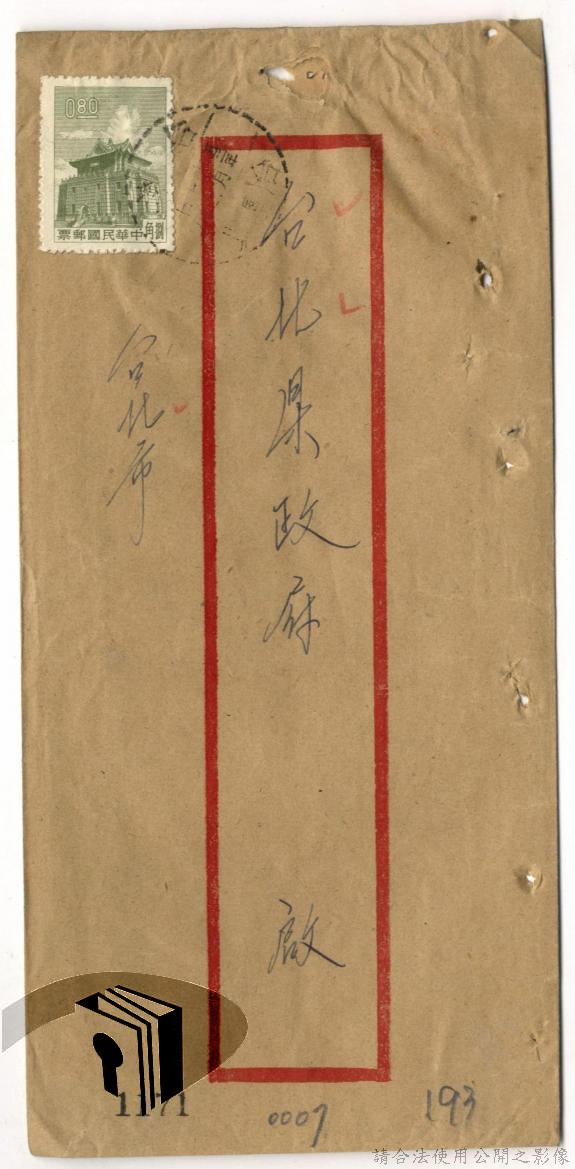 0.80
票郵國民華中
角捌
台北県政府
啟
台北市
1171
0007
193
請合法使用公開之影像